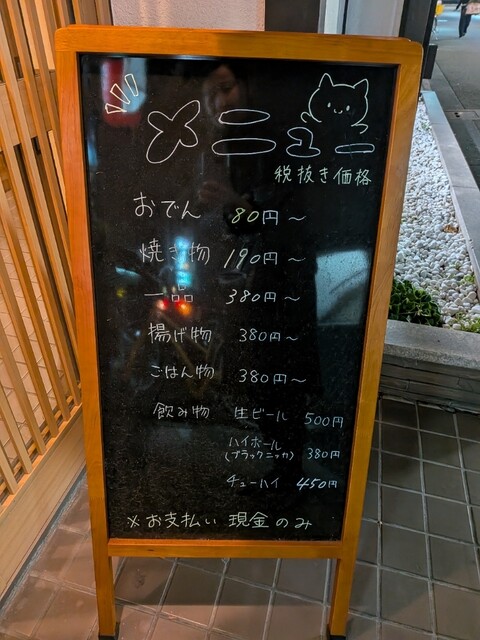 メニュー
税抜き価格
おでん 80円～
焼き物 190円～
一品 380円～
揚げ物 380円～
ごはん物 380円～
飲み物 生ビール 500円
ハイボール
(ブラックニッカ) 380円
チューハイ 450円
※お支払い 現金のみ